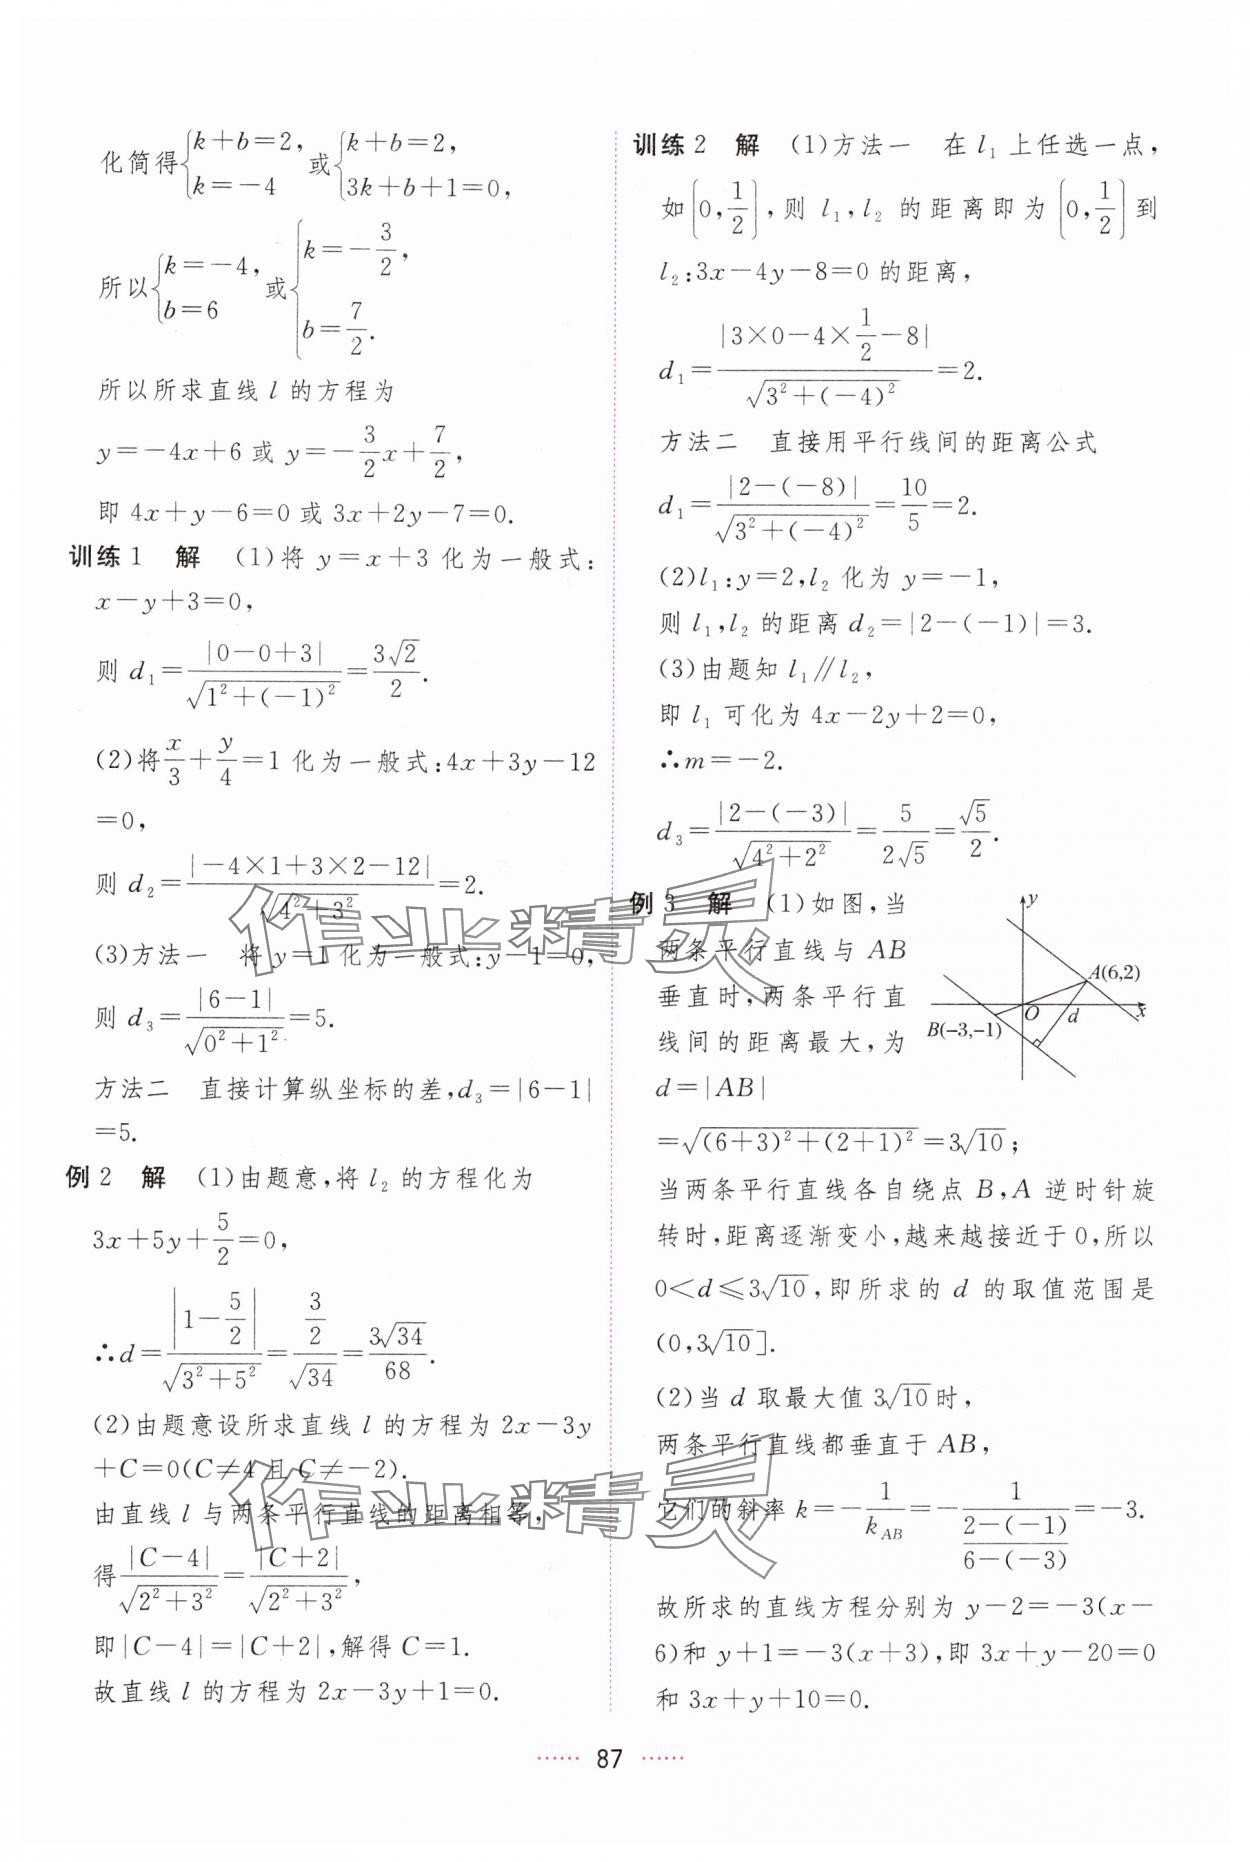 化简得{k+b=2, k=-4 或{k+b=2, 3k+b+1=0,
所以{k=-4, b=6 或{k=-3/2, b=7/2.
所以所求直线 l 的方程为
y=-4x+6 或 y=-3/2x+7/2,
即 4x+y-6=0 或 3x+2y-7=0.
训练1 解 (1)将 y=x+3 化为一般式:
x-y+3=0,
则 d₁=|0-0+3|/√(1²+(-1)²)=3√2/2.
(2)将x/3+y/4=1 化为一般式:4x+3y-12
=0,
则 d₂=|-4×1+3×2-12|/√(4²+3²)=2.
(3)方法一 将 y=1 化为一般式:y-1=0,
则 d₃=|6-1|/√(0²+1²)=5.
方法二 直接计算纵坐标的差,d₃=|6-1|
=5.
例2 解 (1)由题意,将 l₂ 的方程化为
3x+5y+5/2=0,
∴d=|1-5/2|/√(3²+5²)=(3/2)/√34=3√34/68.
(2)由题意设所求直线 l 的方程为 2x-3y
+C=0(C≠4 且 C≠-2).
由直线 l 与两条平行直线的距离相等,
得|C-4|/√(2²+3²)=|C+2|/√(2²+3²),
即|C-4|=|C+2|,解得 C=1.
故直线 l 的方程为 2x-3y+1=0.
训练2 解 (1)方法一 在 l₁ 上任选一点,
如(0,1/2),则 l₁,l₂ 的距离即为(0,1/2)到
l₂:3x-4y-8=0 的距离,
d₁=|3×0-4×1/2-8|/√(3²+(-4)²)=2.
方法二 直接用平行线间的距离公式
d₁=|2-(-8)|/√(3²+(-4)²)=10/5=2.
(2)l₁:y=2,l₂ 化为 y=-1,
则 l₁,l₂ 的距离 d₂=|2-(-1)|=3.
(3)由题知 l₁∥l₂,
即 l₁ 可化为 4x-2y+2=0,
∴m=-2.
d₃=|2-(-3)|/√(4²+2²)=5/(2√5)=√5/2.
例3 解 (1)如图,当
两条平行直线与 AB
垂直时,两条平行直
线间的距离最大,为
d=|AB|
y
A(6,2)
O
d
x
B(-3,-1)
=√((6+3)²+(2+1)²)=3√10;
当两条平行直线各自绕点 B,A 逆时针旋
转时,距离逐渐变小,越来越接近于 0,所以
0<d≤3√10,即所求的 d 的取值范围是
(0,3√10].
(2)当 d 取最大值 3√10时,
两条平行直线都垂直于 AB,
它们的斜率 k=-1/k_AB=-1/((2-(-1))/(6-(-3)))=-3.
故所求的直线方程分别为 y-2=-3(x-
6)和 y+1=-3(x+3),即 3x+y-20=0
和 3x+y+10=0.
作业精灵
作业精灵
······ 87 ······